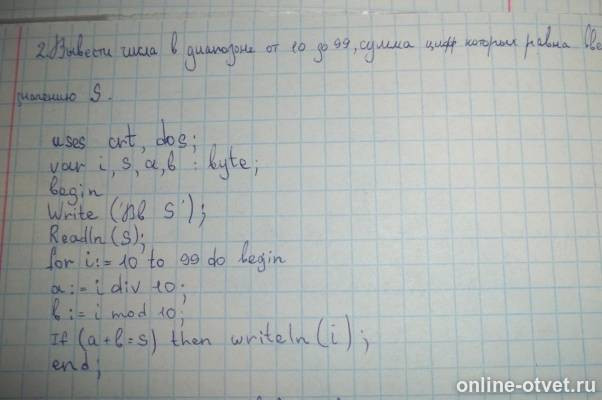 2. Вывести числа в диапазоне от 10 до 99, сумма цифр которых равна
значению S.
uses crt, dos;
var i, s, a, b : byte;
begin
Write ('Вв S');
Readln (S);
for i:= 10 to 99 do begin
a:= i div 10;
b:= i mod 10;
If (a+b=s) then writeln (i);
end;
online-otvet.ru